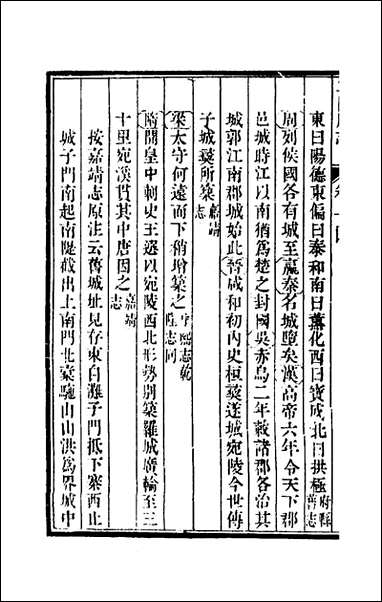 東曰陽德東偏曰泰和南曰薰化西曰寶成北曰拱極府縣舊志
周列侯國各有城至嬴秦名城墮矣漢高帝六年令天下郡
邑城時江以南猶爲楚之封國吳赤烏二年敕諸郡各治其
城郭江南郡城始此晉咸和初內史桓彝遂城宛陵今世傳
子城彝所築嘉靖志
梁太守何遠而下稍增築之寧熙志乾隆志同
隋開皇中刺史王選以宛陵西北形勢別築羅城廣輪至三
十里宛溪貫其中唐因之嘉靖志
按嘉靖志原注云舊城址見存東自灘子門抵下寨西止
城子門南起南隄截出上南門北橐駞山山洪爲界城中